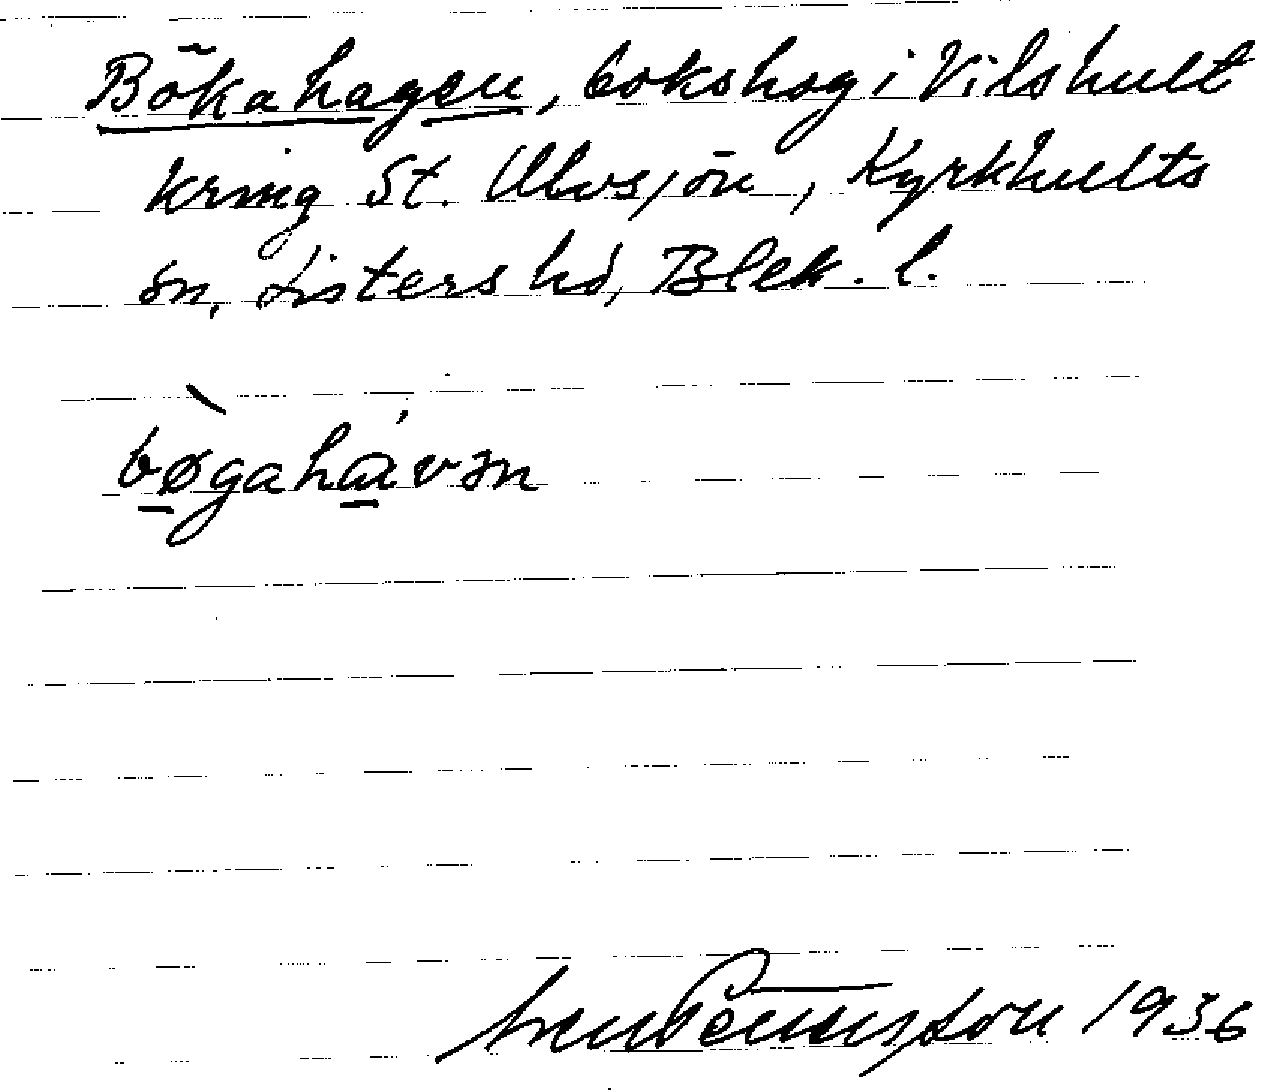 Bökahagen, bokskog i Vilshult
kring St. Ulvsjön, Kyrkhults
sn, Listers hd, Blek. l.
bø̀gahávən
1936